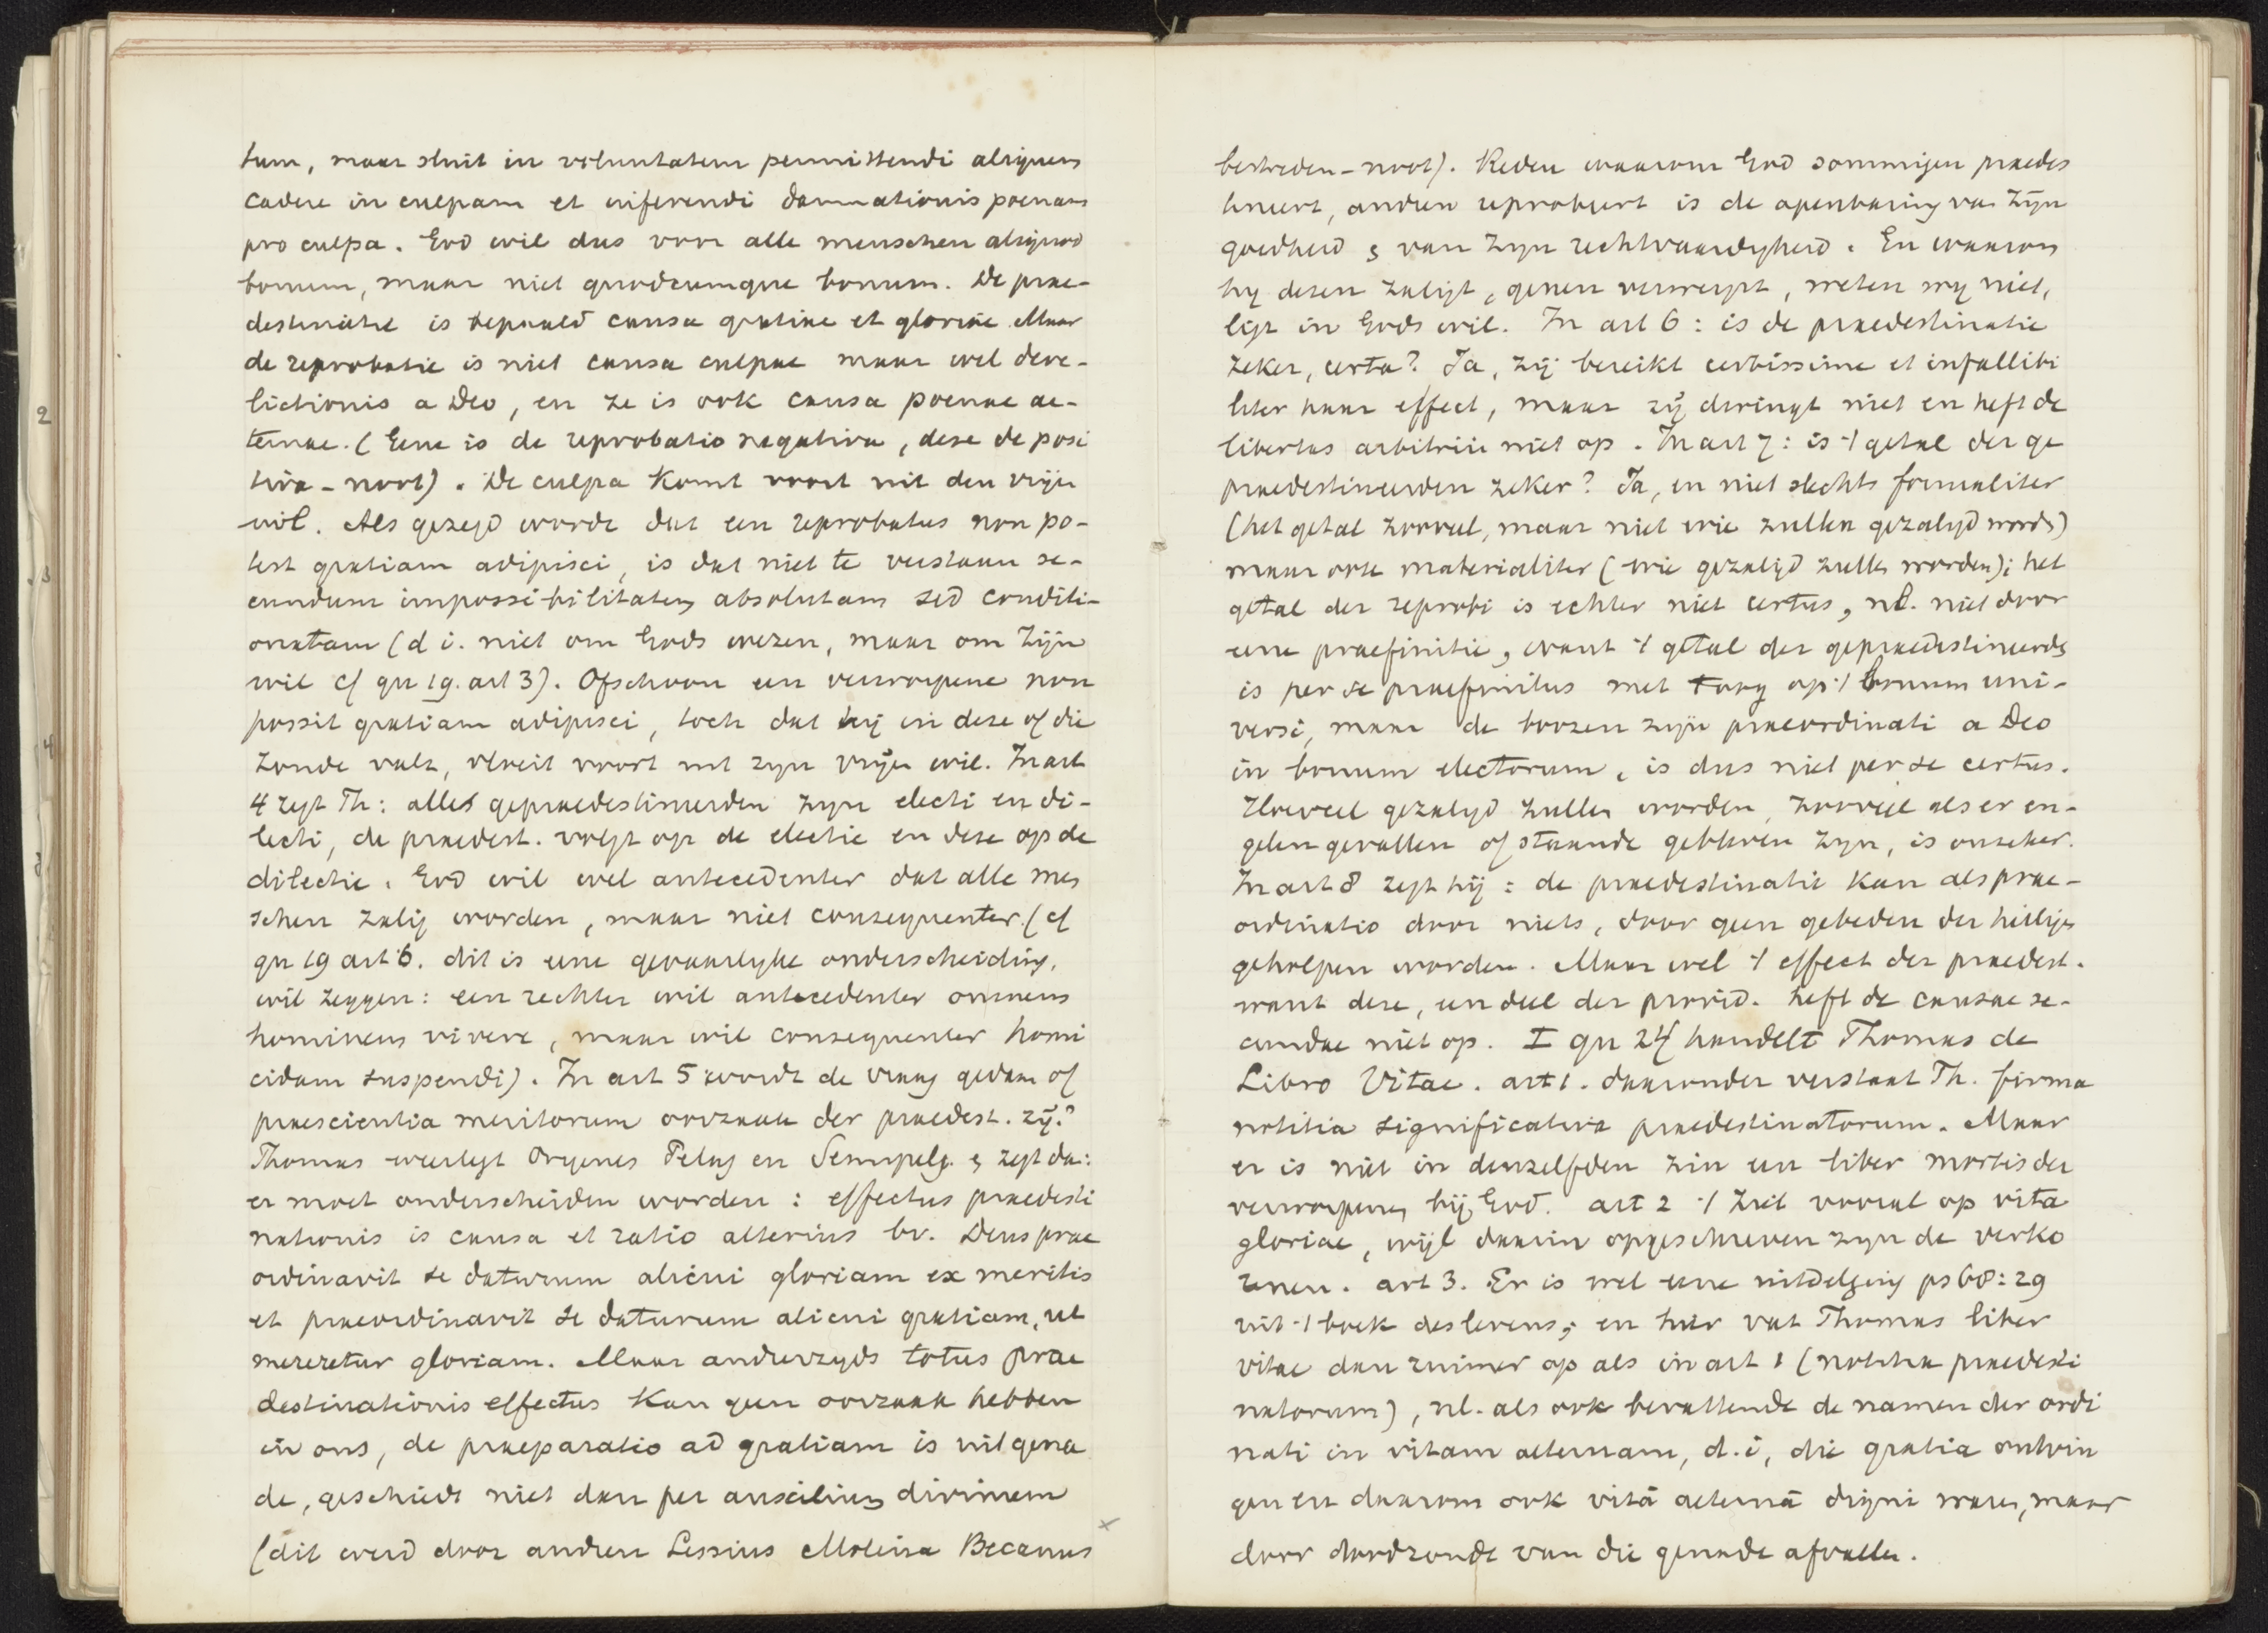 tum, maar sluit in voluntatem permittendi aliquem
cadere in culpam et inferendi damnationis poenam
pro culpa. God wil dus voor alle menschen aliquod
bonum, maar niet quodcumque bonum. De prae-
destinatie is bepaald causa gratiae et gloriae. Maar
de reprobatie is niet causa culpae maar wel dere-
lictionis a Deo, en ze is ook causa poenae ae-
ternae. (Gene is de reprobatio negativa, deze de posi
tiva - noot). De culpa komt voort uit den vrijen
wil. Als gezegd wordt dat een reprobatus non po-
test gratiam adipisci, is dat niet te verstaan se-
cundum impossibilitatem absolutam sed conditi-
onatam (d i. niet om Gods wezen, maar om zijn
wil cf qu 19. art 3). Ofschoon een verworpene non
possit gratiam adipisci, toch dat hij in deze of die
zonde valt, vloeit voort uit zijn vrijen wil. In art
4 zegt Th: alles gepraedestineerden zyn electi en di-
lecti, de praedest. volgt op de electie en deze op de
dilectie. God wil wel antecedenter dat alle men
schen zalig worden, maar niet consequenter. (cf
qu 19 art 6. dit is eene gevaarlyke onderscheiding.
wil zeggen: een rechter wil antecedenter omnem
hominem vivere, maar wil consequenter homi
cidam suspendi). In art 5 wordt de vraag gedaan of
praescientia meritorum oorzaak der praedest. zij?
Thomas weerlegt Origenes Pelag en Semipelg. & zegt dan:
er moet onderscheiden worden: effectus praedesti
nationis is causa et ratio alterius bv. Deus prae
ordinavit se daturum alicui gloriam ex meritis
et praeordinavit se daturum alicui gratiam, ut
mereretur gloriam. Maar anderzyds totus prae
destinationis effectus kan geen oorzaak hebben
in ons, de praeparatio ad gratiam is uit gena
de, geschiedt niet dan per auxilium divinum
(dit werd door andren Lessius Molina Becanus
bestreden - noot). Reden waarom God sommigen praedes
tineert, andren reprobeert is de openbaring van zijn
goedheid & van zyn rechtvaardigheid. En waarom
hy dezen zaligt, genen verwerpt, weten wy niet,
ligt in Gods wil. In art 6: is de praedestinatie
zeker, certa? Ja, zij bereikt certissime et infallibi
liter haar effect, maar zij dwingt niet en heft de
libertas arbitrii niet op. In art 7: is 't getal der ge
praedestineerden zeker? Ja, en niet slechts formaliter
(het getal zooveel, maar niet wie zullen gezaligd worden)
maar ook materialiter (wie gezaligd zullen worden); het
getal der reprobi is echter niet certus, nl. niet door
eene praefinitie, want 't getal der gepraedestineerden
is per se praefinitus met 't oog op 't bonum uni-
versi, maar de boozen zijn praeordinati a Deo
in bonum electorum, is dus niet per se certus.
Hoeveel gezaligd zullen worden, zooveel als er en-
gelen gevallen of staande gebleven zyn, is onzeker.
In art 8 zegt hij: de praedestinatie kan als prae-
ordinatio door niets, door geen gebeden der heiligen
geholpen worden. Maar wel 't effect der praedest.
want deze, een deel der provid. heft de causae se-
cundae niet op. I qu 24 handelt Thomas de
Libro Vitae. art 1. daaronder verstaat Th. firma
notitia significativa praedestinatorum. Maar
er is niet in denzelfden zin een liber mortis der
verworpenen bij God. art 2 't ziet vooral op vita
gloriae, wijl daarin opgeschreven zyn de verko
renen. art 3. Er is wel eene uitdelging ps 68:29
uit 't boek des levens; en hier vat Thomas liber
vitae dan ruimer op als in art 1 (notitia praedesti
natorum), nl. als ook bevattende de namen der ordi
nati in vitam aeternam, d.i, die gratia ontvin
gen en daarom ook vitā aeternā digni waren, maar
door doodzonde van die genade afvallen.